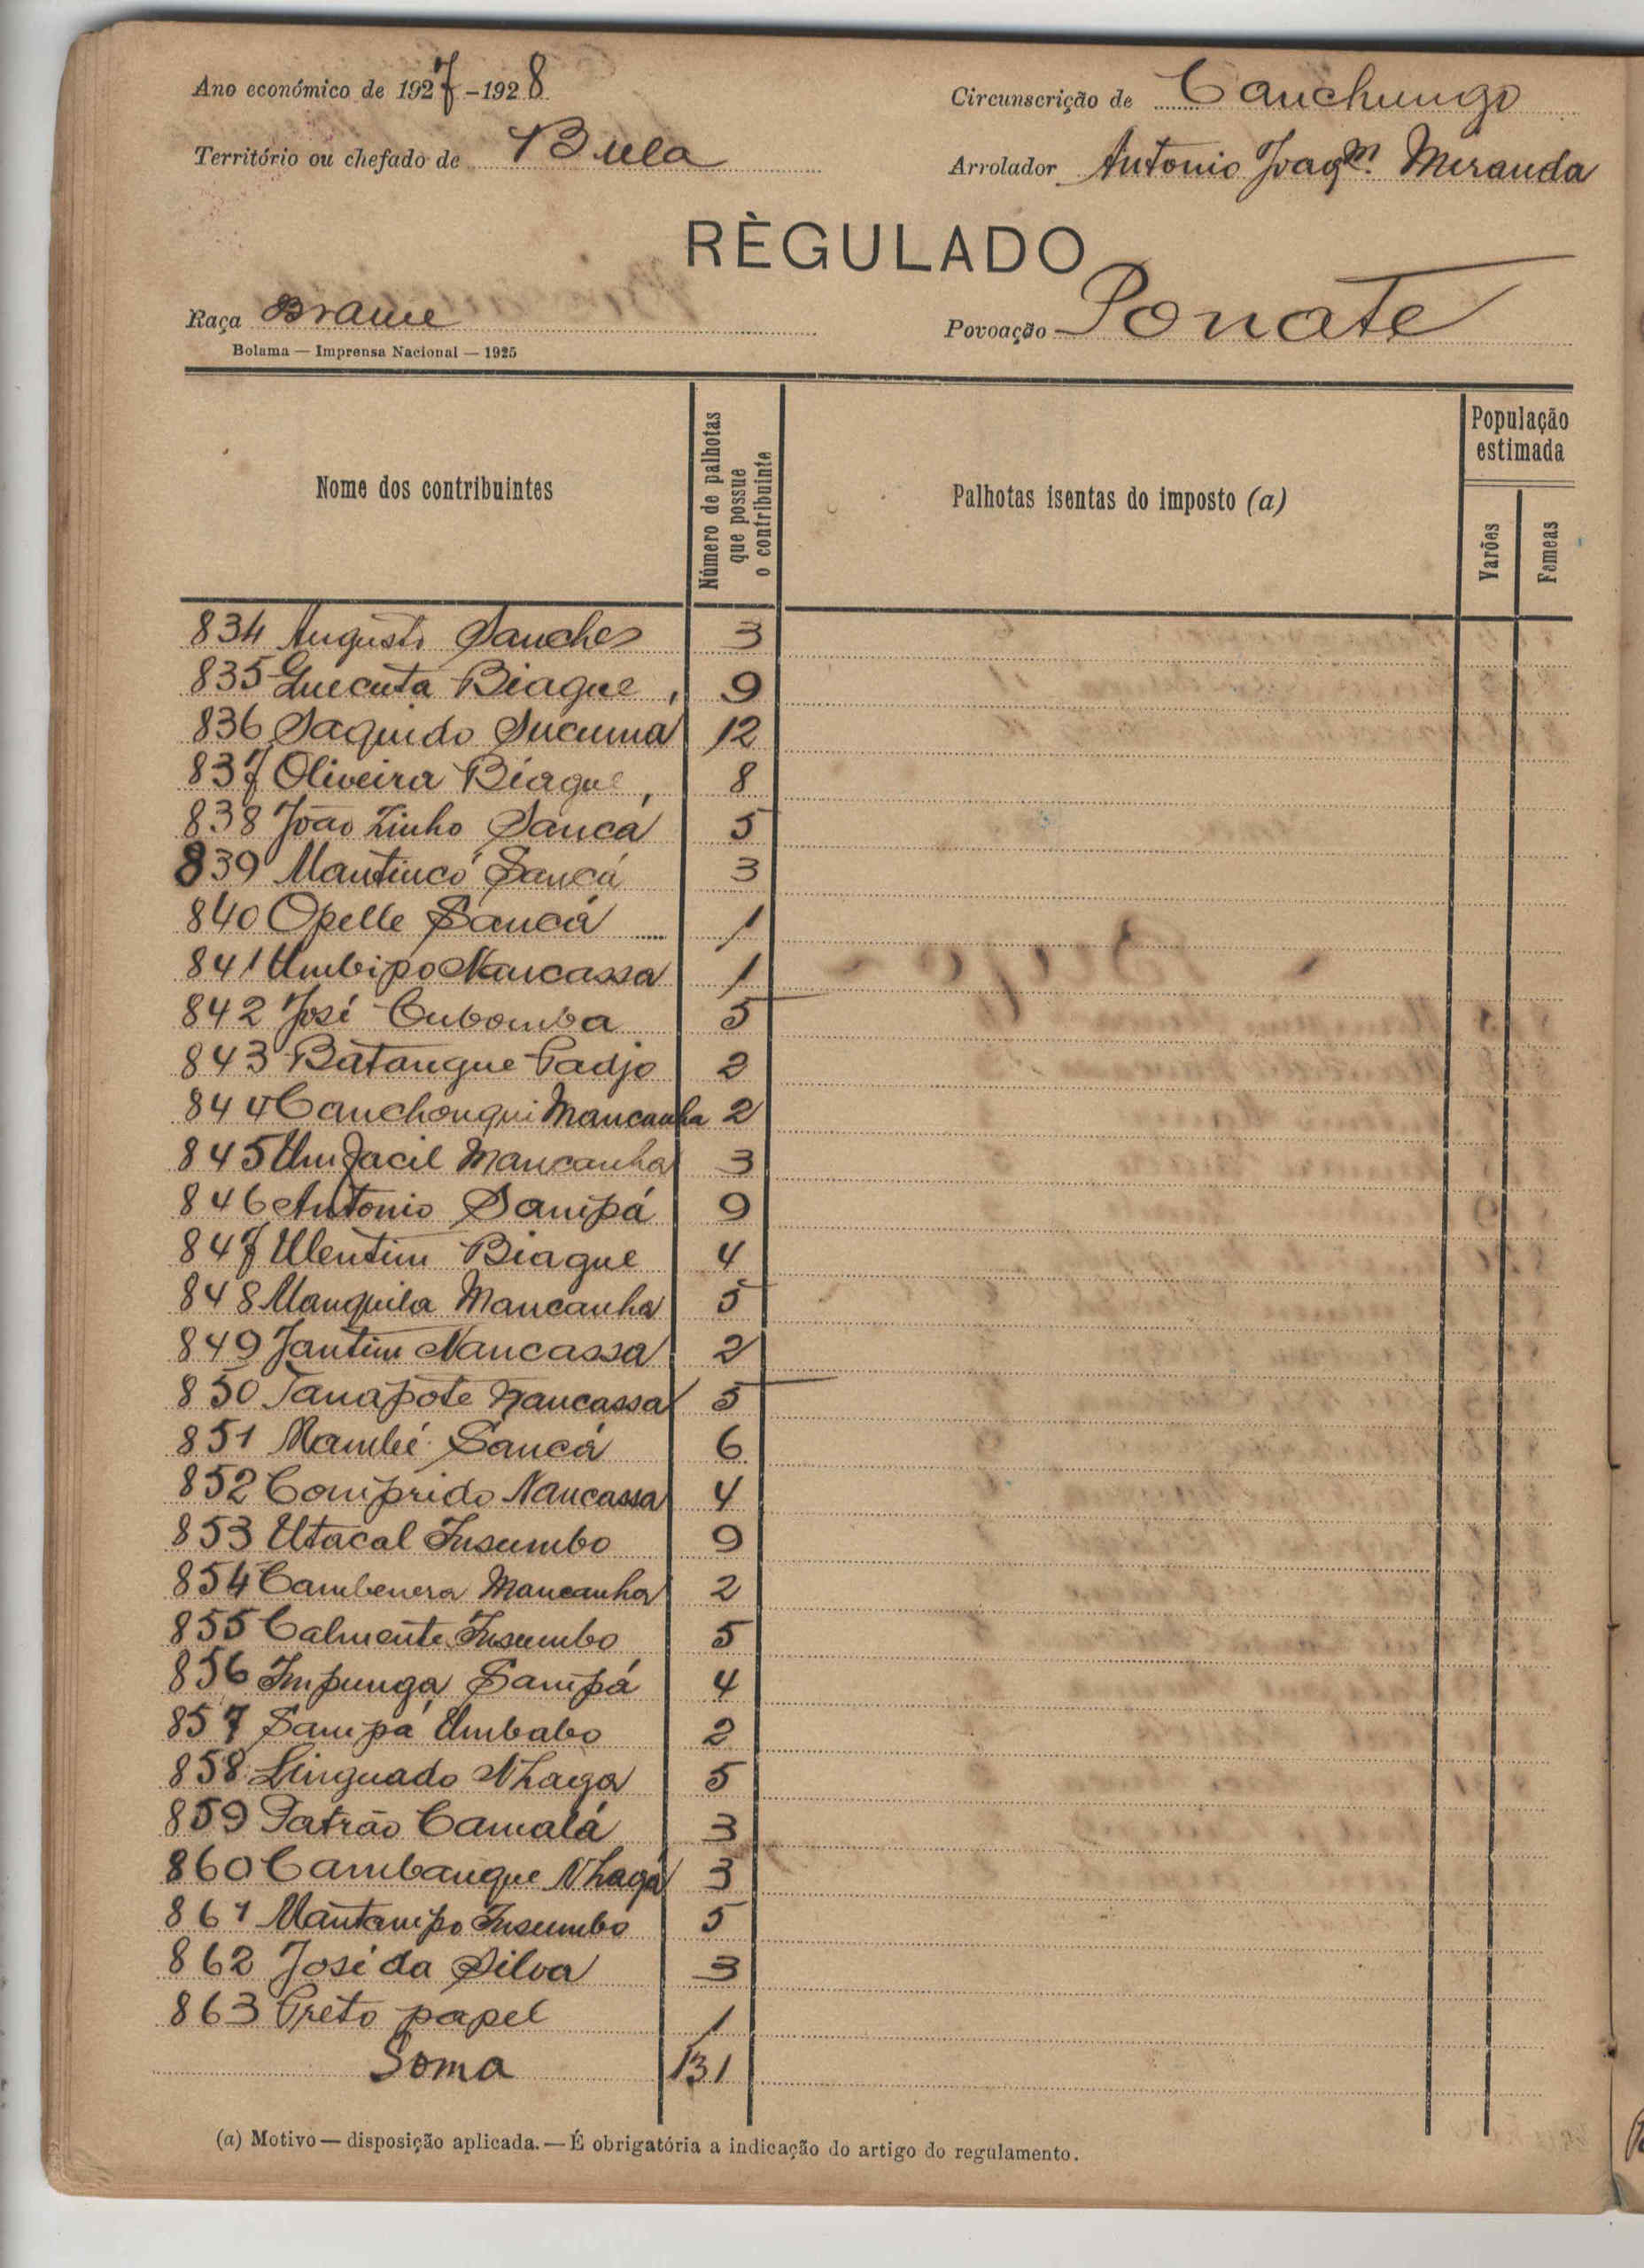 Ano económico de 1927-1928
Circunscrição de Canchungo
Território ou chefado de Bula
Arrolador Antonio Joaqm. Miranda
RÈGULADO
Raça Brame
Povoação Ponate
Bolama — Imprensa Nacional — 1925
Nome dos contribuintes
Número de palhotas que possue o contribuinte
Palhotas isentas do imposto (a)
População estimada
Varões
Femeas
834 Augusto Sanches 3
835 Guecuta Biague, 9
836 Saquido Sucuma 12
837 Oliveira Biague, 8
838 João Zinho Sanca 5
839 Mantinco Sancá 3
840 Opelle Sancá 1
841 Umbipo Nancassa 1
842 José Cubomba 5
843 Batangue Padjo 2
844 Canchongui Mancanha 2
845 Umjacil Mancanha 3
846 Antonio Sampá 9
847 Ulentim Biague 4
848 Manquila Mancanha 5
849 Jantim Nancassa 2
850 Tanapote Nancassa 5
851 Mambé Sancá 6
852 Comprido Nancassa 4
853 Utacal Insumbo 9
854 Cambenera Mancanha 2
855 Calmente Insumbo 5
856 Impunga Sampá 4
857 Sampá Umbabo 2
858 Linguado Nhaga 5
859 Patrão Camalá 3
860 Cambangue Nhagá 3
861 Mantampo Insumbo 5
862 José da Silva 3
863 Preto papel 1
Soma 131
(a) Motivo — disposição aplicada. — É obrigatória a indicação do artigo do regulamento.